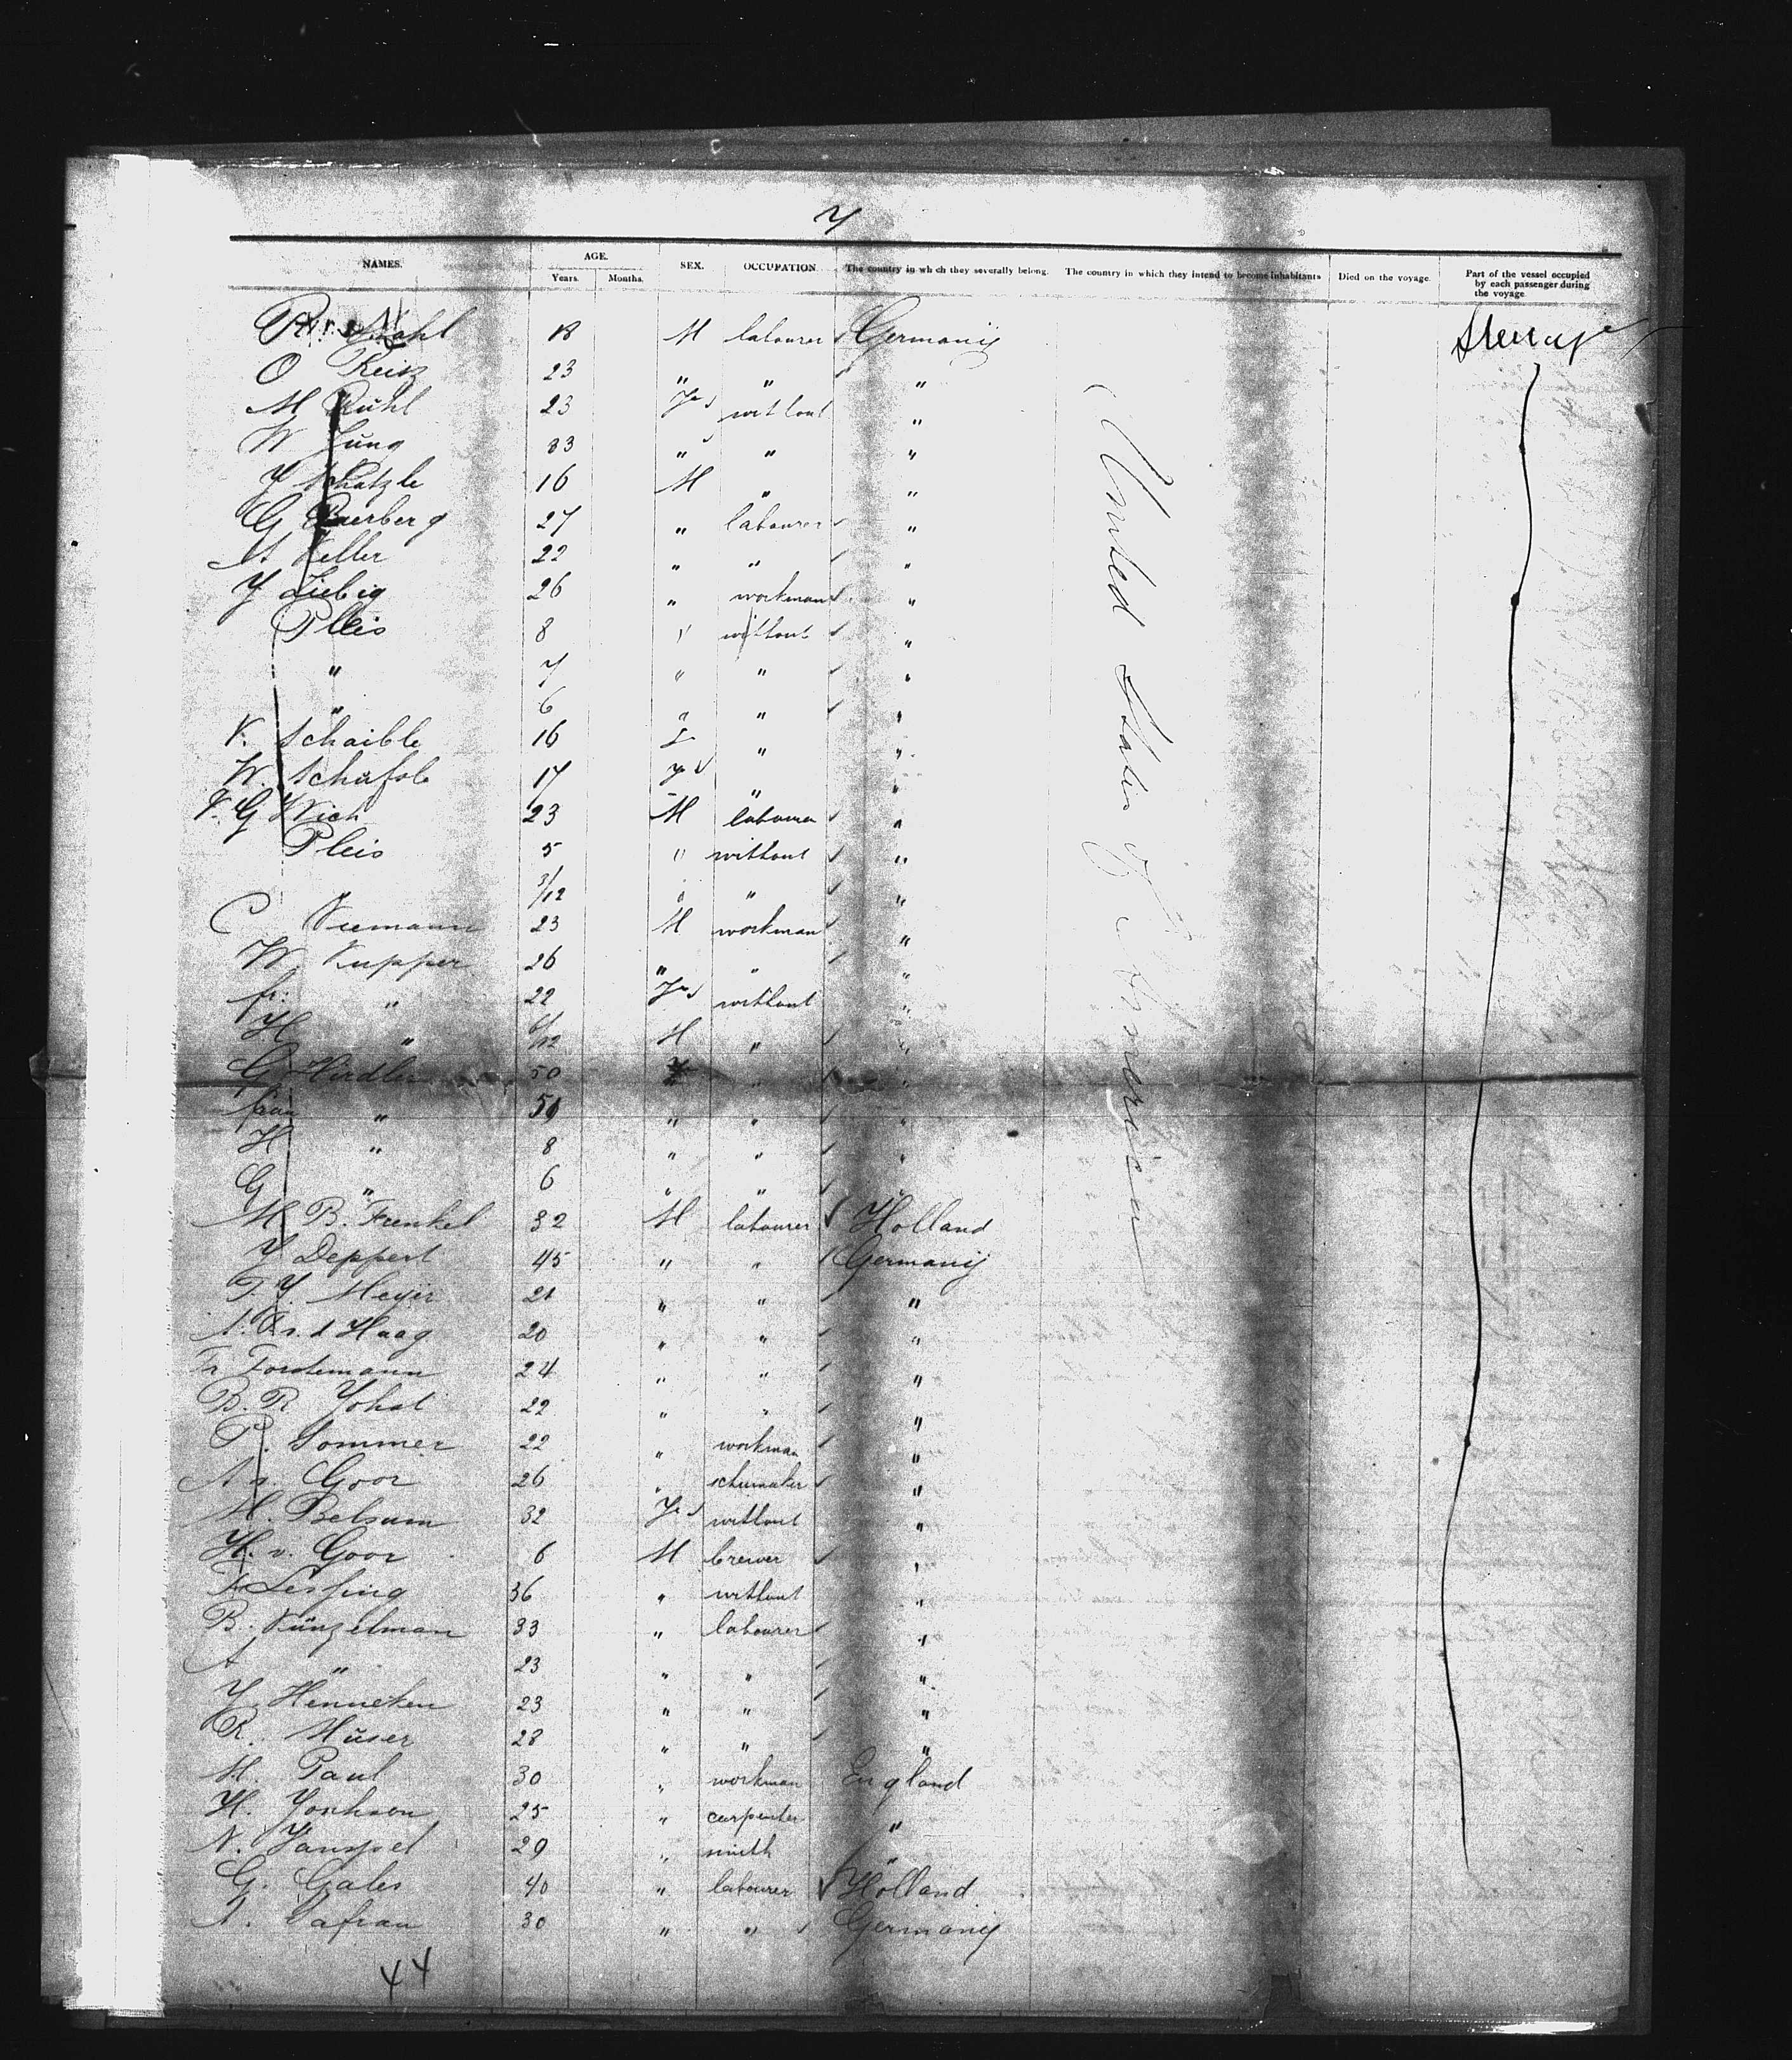 7
NAMES. AGE. SEX. OCCUPATION. The country in which they severally belong. The country in which they intend to become inhabitants Died on the voyage. Part of the vessel occupied by each passenger during the voyage
Years. Months.
18 M labourer Germanij Steerage
O Reitz 23 " " "
M Rühl 23 Fe without "
W Jung 33 " " "
J Schatzle 16 M " "
G Bierberg 27 " labourer "
A Keller 22 " " "
J Liebig 26 " workman "
Pleis 8 " without "
" 7 " " "
" 6 " " "
K. Schaible 16 " "
W. Schäfole 17 Fe " "
K. G Wich 23 M labourer "
Pleis 5 " without "
3/12 " " "
C Niemann 23 M workman "
W. Kupper 26 " " "
fr: " 22 Fe without "
H " 6/12 M " "
G Hirdler 50 " "
frau " 51 " " "
H " 8 " " "
G " 6 " " "
M B. Funkel 32 M labourer Holland
J Deppert 45 " " Germanij
T. J. Meyer 21 " " "
Haag 20 " " "
Fr Forstemann 24 " " "
B. R Johst 22 " " "
P. Sommer 22 " workman "
A v. Goor 26 " schumaker "
M. Belsum 32 Fe without "
H. v. Goor 6 M brewer "
Lessing 36 " without "
B. Künzelman 33 " labourer "
A " 23 " " "
J. Henneken 23 " " "
R. Müser 28 " " "
M. Paul 30 " workman England
H. 25 " carpenter "
N. 29 " smith "
G. Gales 40 " labourer Holland
A. Safran 30 " " Germanij
United States of America
44